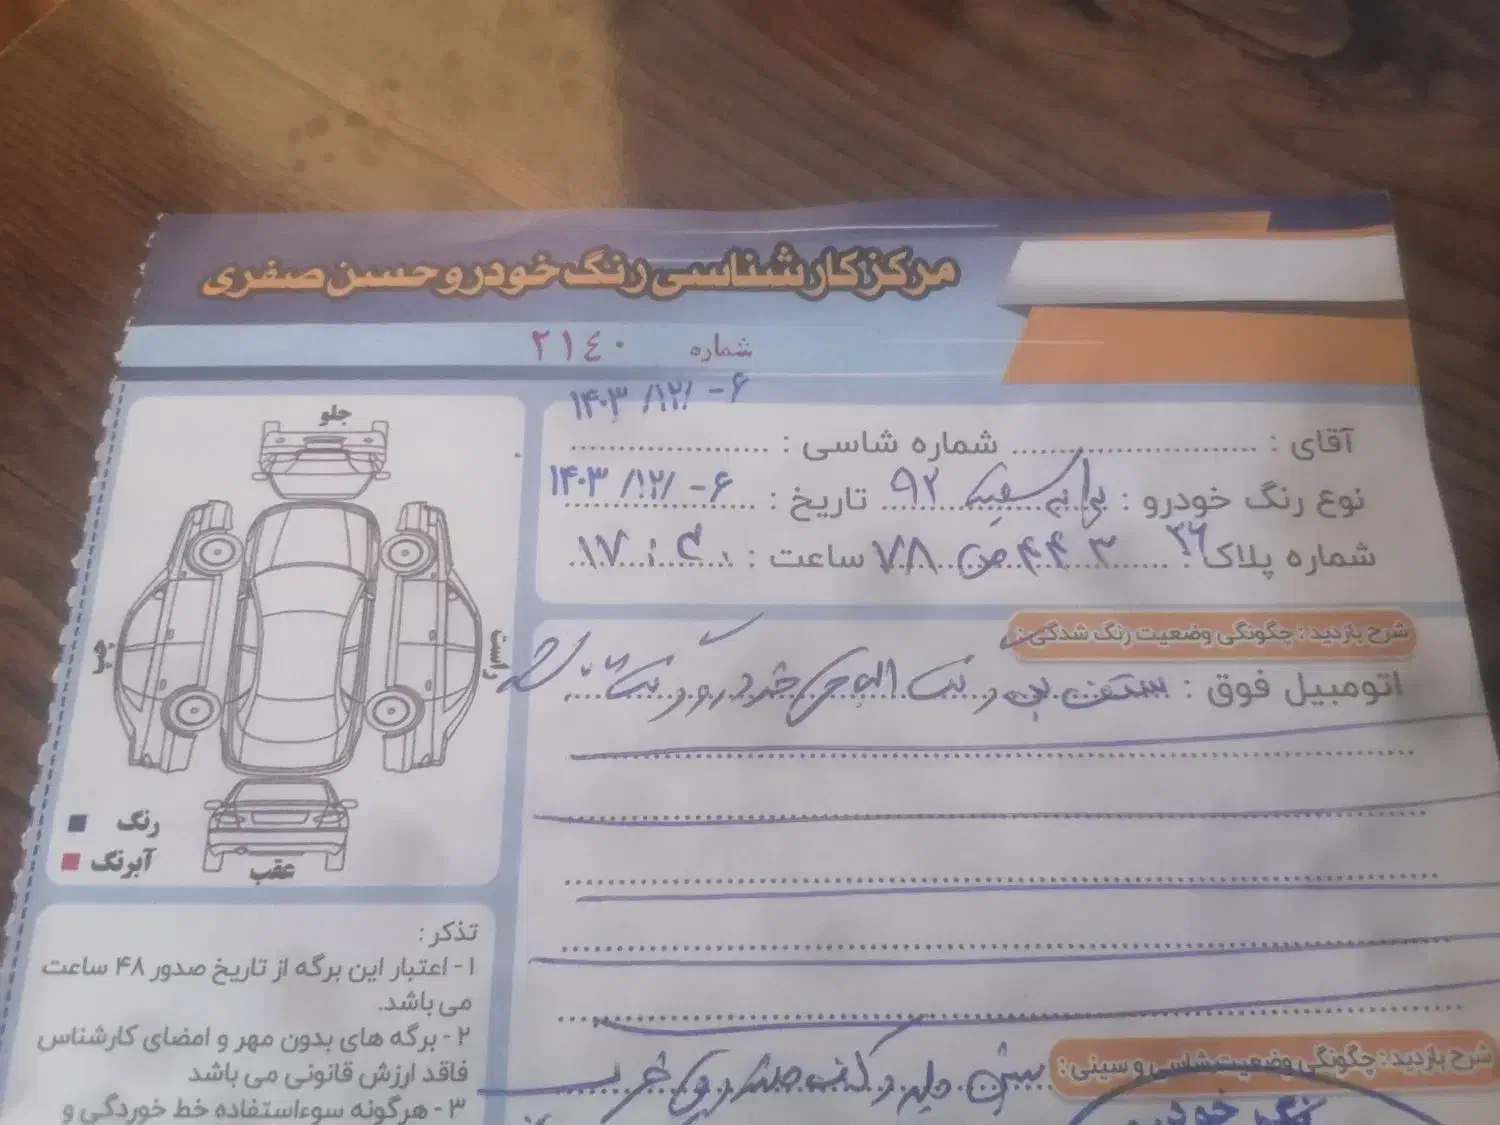 مرکز کارشناسی رنگ خودرو حسن صفری
شماره ۲۱٤۰
۱۴۰۳/۱۲/-۶
آقای : شماره شاسی :
نوع رنگ خودرو : سفید ۹۲ تاریخ : ۱۴۰۳/۱۲/-۶
شماره پلاک : ۷۸ ص ۴۴۳ ساعت : ۱۷
شرح بازدید : چگونگی وضعیت رنگ شدگی :
اتومبیل فوق : سقف بی رنگ
جلو
چپ
راست
عقب
رنگ
آبرنگ
تذکر :
۱- اعتبار این برگه از تاریخ صدور ۴۸ ساعت
می باشد.
۲- برگه های بدون مهر و امضای کارشناس
فاقد ارزش قانونی می باشد
۳- هرگونه سوءاستفاده خط خوردگی و
شرح بازدید : چگونگی وضعیت شاسی و سینی :